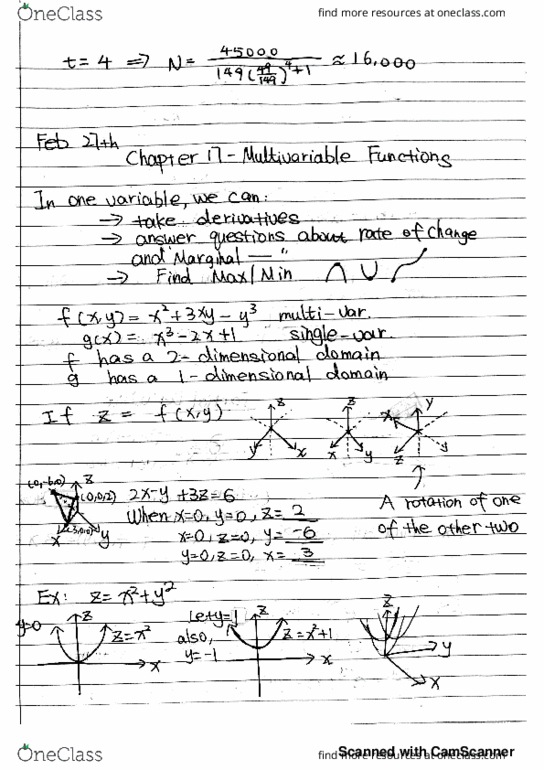 OneClass
find more resources at oneclass.com
t = 4 => N = 45000 / 149(49/149)^4+1 ≈ 16,000
Feb 27th
Chapter 17 - Multivariable Functions
In one variable, we can:
→ take derivatives
→ answer questions about rate of change
and "Marginal — "
→ Find Max/Min
f(x,y) = x²+3xy - y³ multi-var.
g(x) = x³-2x+1 single-var.
f has a 2-dimensional domain
g has a 1-dimensional domain
If z = f(x,y)
z y x
z x y
y x z y
(0,-6,0) z (0,0,2) (3,0,0) x y
2x-y+3z=6
When x=0, y=0, z= 2
x=0, z=0, y= -6
y=0, z=0, x= 3
A rotation of one
of the other two
Ex: z = x²+y²
y=0 z z=x² x
Let y=1
also,
y=-1
z z=x²+1 x
z y x
OneClass
find more resources at oneclass.com
Scanned with CamScanner